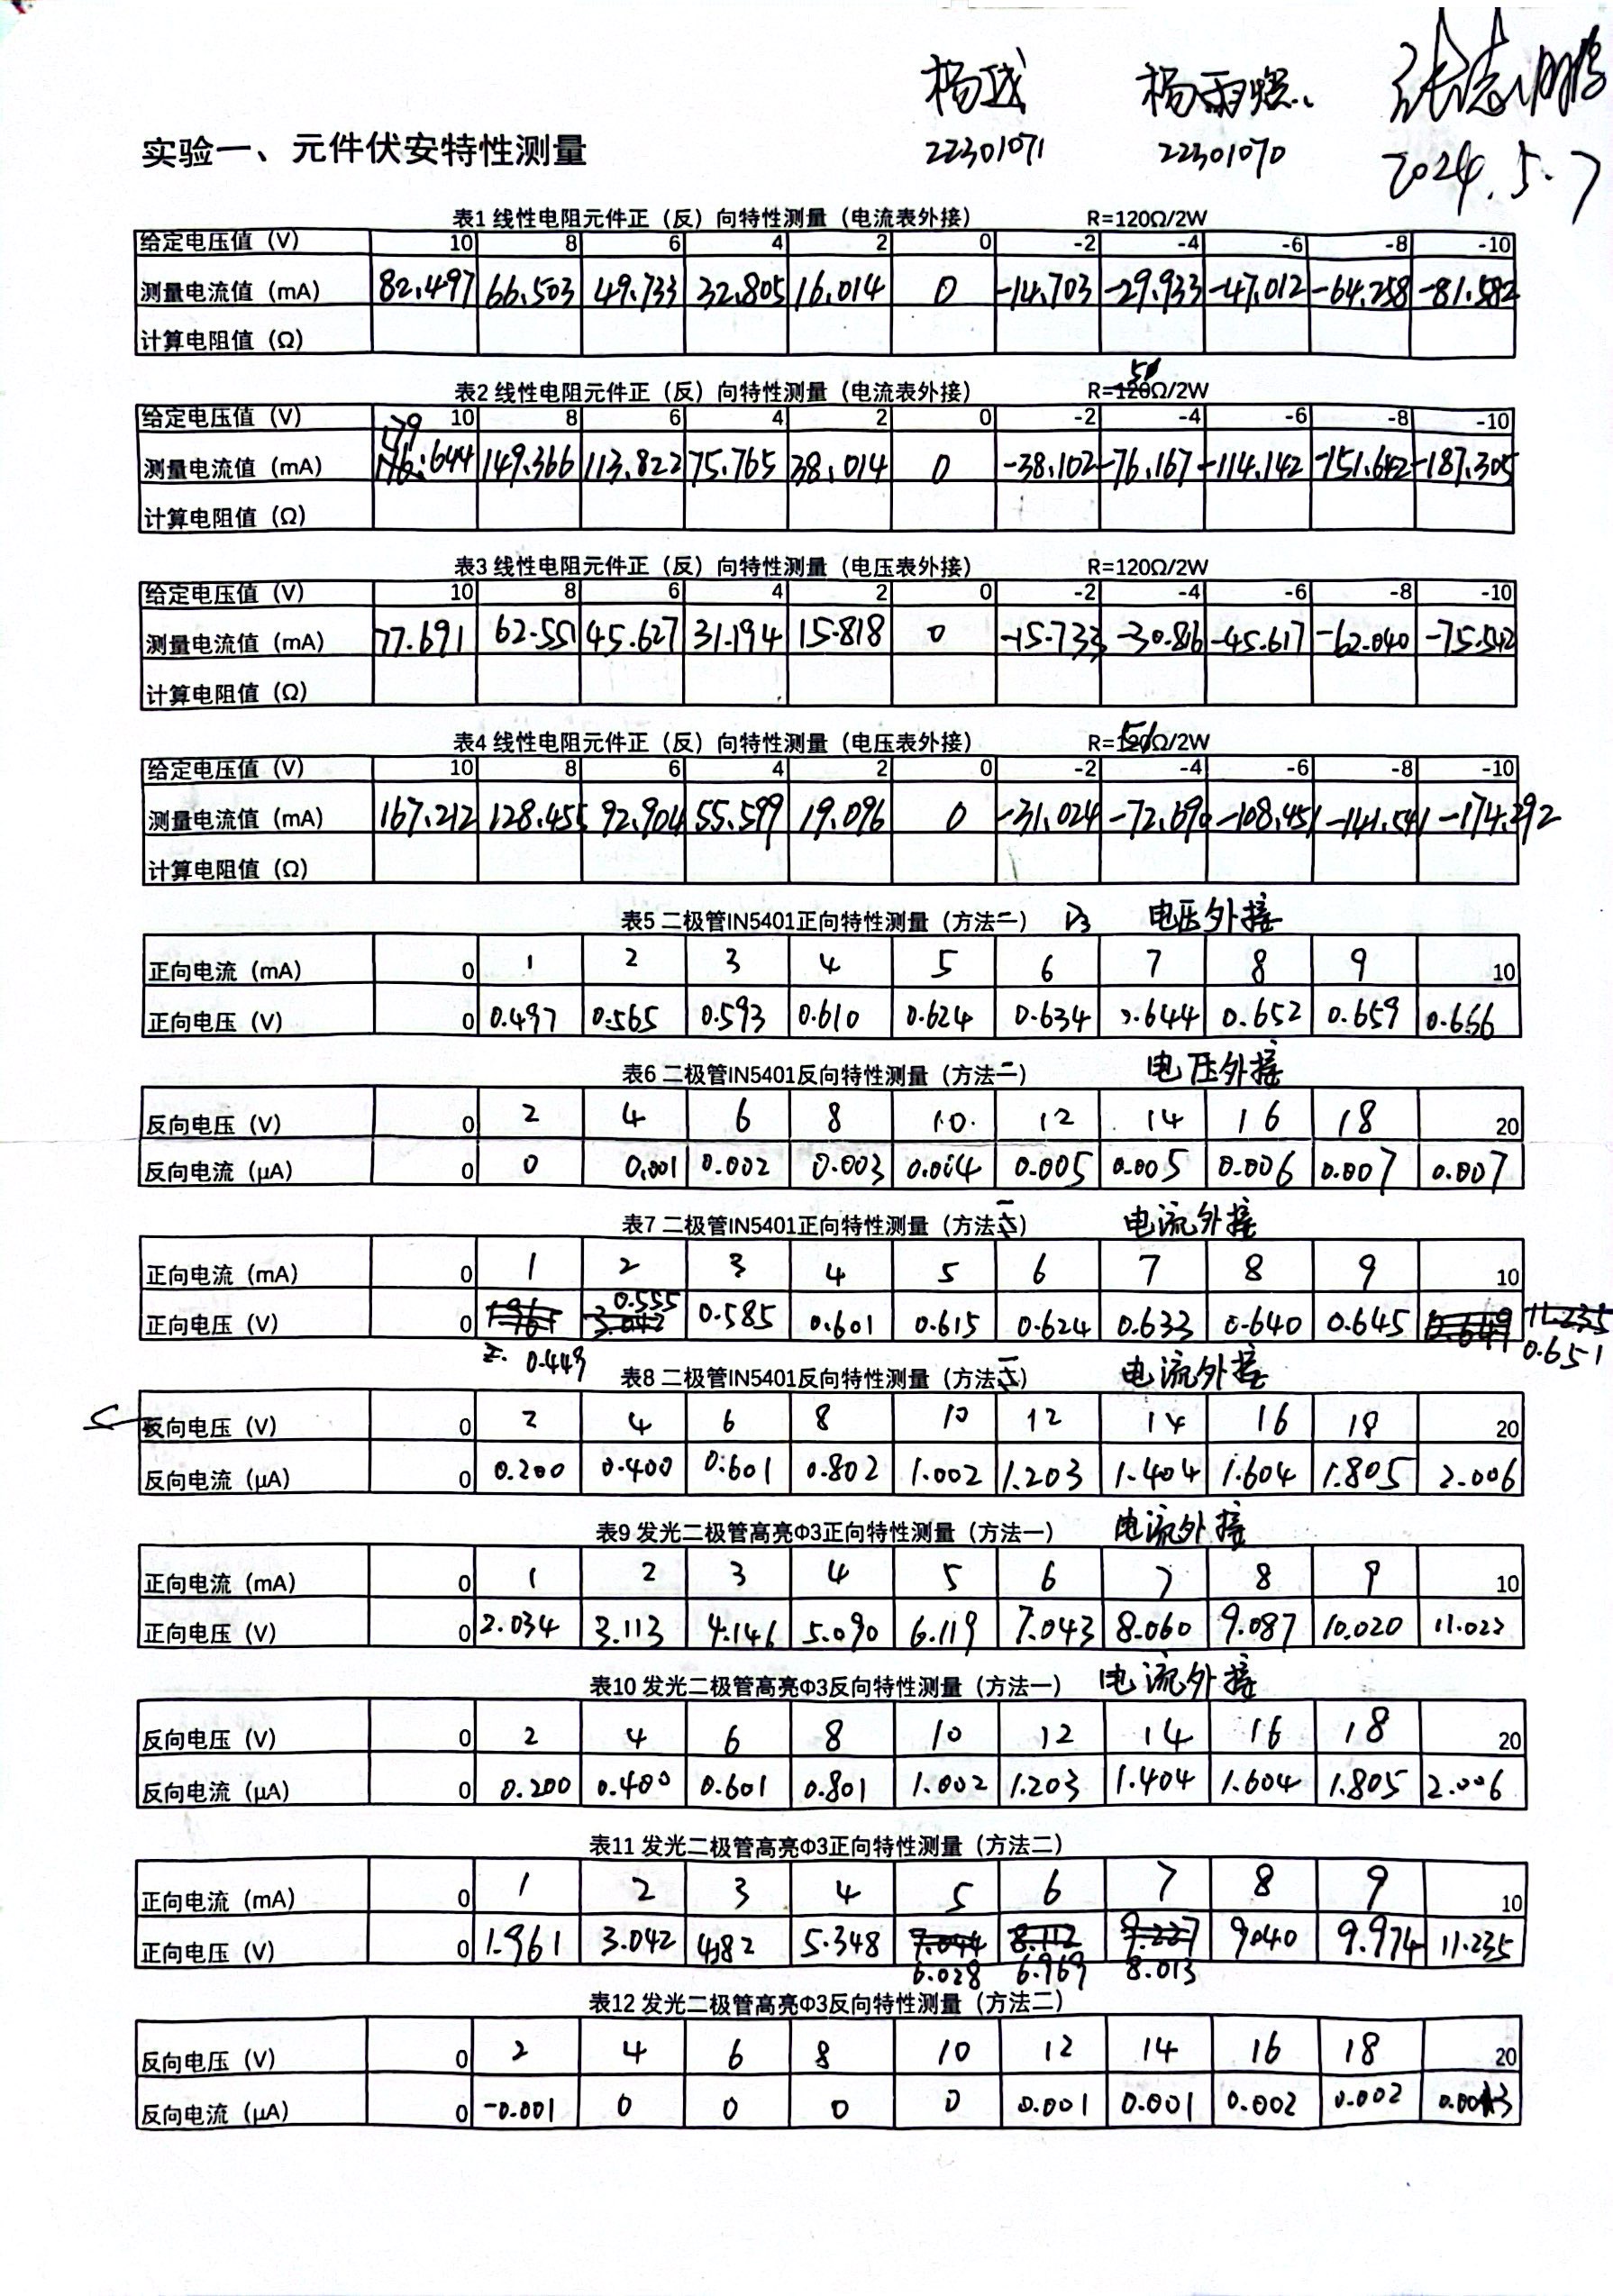 杨斌 杨雨燃 张志鹏
实验一、元件伏安特性测量 22301071 22301070 2024.5.7
表1 线性电阻元件正（反）向特性测量（电流表外接） R=120Ω/2W
给定电压值（V） 10 8 6 4 2 0 -2 -4 -6 -8 -10
测量电流值（mA） 82.497 66.503 49.733 32.805 16.014 0 -14.703 -29.933 -47.012 -64.258 -81.582
计算电阻值（Ω）
表2 线性电阻元件正（反）向特性测量（电流表外接） R=51Ω/2W
给定电压值（V） 10 8 6 4 2 0 -2 -4 -6 -8 -10
测量电流值（mA） 179.644 149.366 113.822 75.765 38.014 0 -38.102 -76.167 -114.142 -151.642 -187.305
计算电阻值（Ω）
表3 线性电阻元件正（反）向特性测量（电压表外接） R=120Ω/2W
给定电压值（V） 10 8 6 4 2 0 -2 -4 -6 -8 -10
测量电流值（mA） 77.691 62.551 45.627 31.194 15.818 0 -15.733 -30.816 -45.617 -62.040 -75.542
计算电阻值（Ω）
表4 线性电阻元件正（反）向特性测量（电压表外接） R=51Ω/2W
给定电压值（V） 10 8 6 4 2 0 -2 -4 -6 -8 -10
测量电流值（mA） 167.212 128.455 92.904 55.599 19.096 0 -31.024 -72.690 -108.451 -141.541 -174.292
计算电阻值（Ω）
表5 二极管IN5401正向特性测量（方法二） 电压外接
正向电流（mA） 0 1 2 3 4 5 6 7 8 9 10
正向电压（V） 0 0.497 0.565 0.593 0.610 0.624 0.634 0.644 0.652 0.659 0.666
表6 二极管IN5401反向特性测量（方法二） 电压外接
反向电压（V） 0 2 4 6 8 10 12 14 16 18 20
反向电流（μA） 0 0 0.001 0.002 0.003 0.004 0.005 0.005 0.006 0.007 0.007
表7 二极管IN5401正向特性测量（方法一） 电流外接
正向电流（mA） 0 1 2 3 4 5 6 7 8 9 10
正向电压（V） 0 0.449 0.555 0.585 0.601 0.615 0.624 0.633 0.640 0.645 0.651
表8 二极管IN5401反向特性测量（方法一） 电流外接
反向电压（V） 0 2 4 6 8 10 12 14 16 18 20
反向电流（μA） 0 0.200 0.400 0.601 0.802 1.002 1.203 1.404 1.604 1.805 2.006
表9 发光二极管高亮Φ3正向特性测量（方法一） 电流外接
正向电流（mA） 0 1 2 3 4 5 6 7 8 9 10
正向电压（V） 0 2.034 3.113 4.146 5.090 6.119 7.043 8.060 9.087 10.020 11.022
表10 发光二极管高亮Φ3反向特性测量（方法一） 电流外接
反向电压（V） 0 2 4 6 8 10 12 14 16 18 20
反向电流（μA） 0 0.200 0.400 0.601 0.801 1.002 1.203 1.404 1.604 1.805 2.006
表11 发光二极管高亮Φ3正向特性测量（方法二）
正向电流（mA） 0 1 2 3 4 5 6 7 8 9 10
正向电压（V） 0 1.961 3.042 4.182 5.348 7.044 8.112 9.227 9.040 9.974 11.235
6.028 6.969 8.013
表12 发光二极管高亮Φ3反向特性测量（方法二）
反向电压（V） 0 2 4 6 8 10 12 14 16 18 20
反向电流（μA） 0 -0.001 0 0 0 0 0.001 0.001 0.002 0.002 0.003